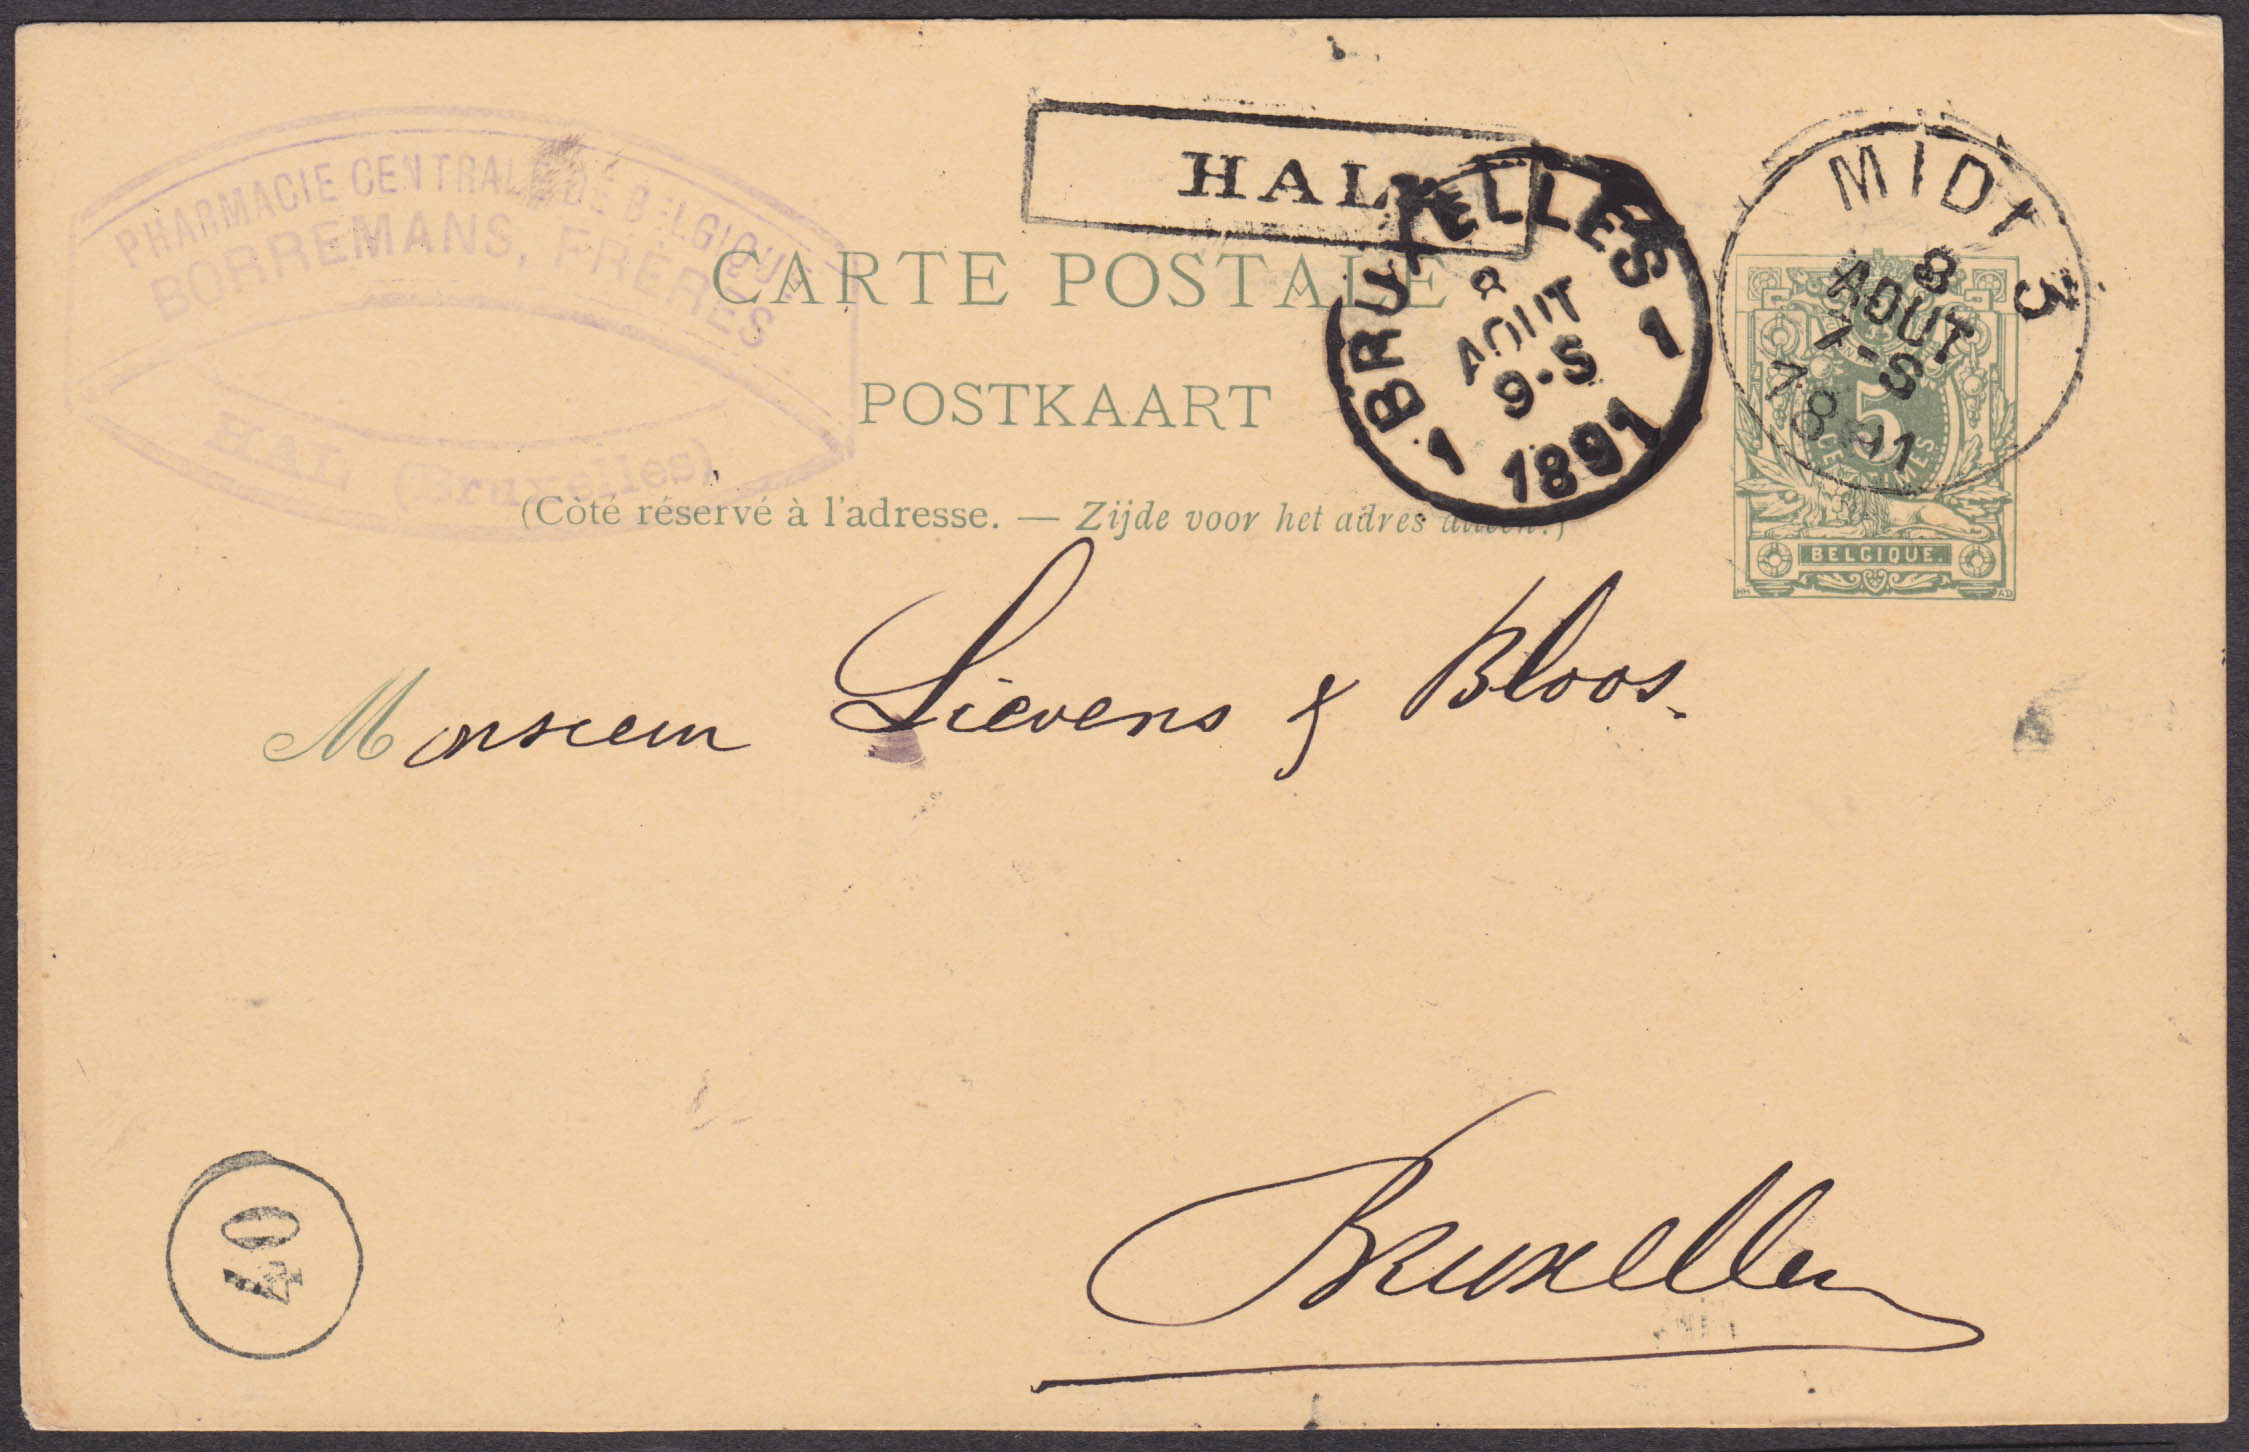 PHARMACIE CENTRALE DE BELGIQUE
BORREMANS, FRÈRES
HAL (Bruxelles)
HAL
CARTE POSTALE
POSTKAART
(Côté réservé à l'adresse. — Zijde voor het adres alleen.)
BRUXELLES
8
AOUT
9-S
1 1891 1
MIDI 3
8
AOUT
7-S
5
CENTIMES
BELGIQUE.
HH AD
Monsieur Lievens & Bloos.
Bruxelles
40